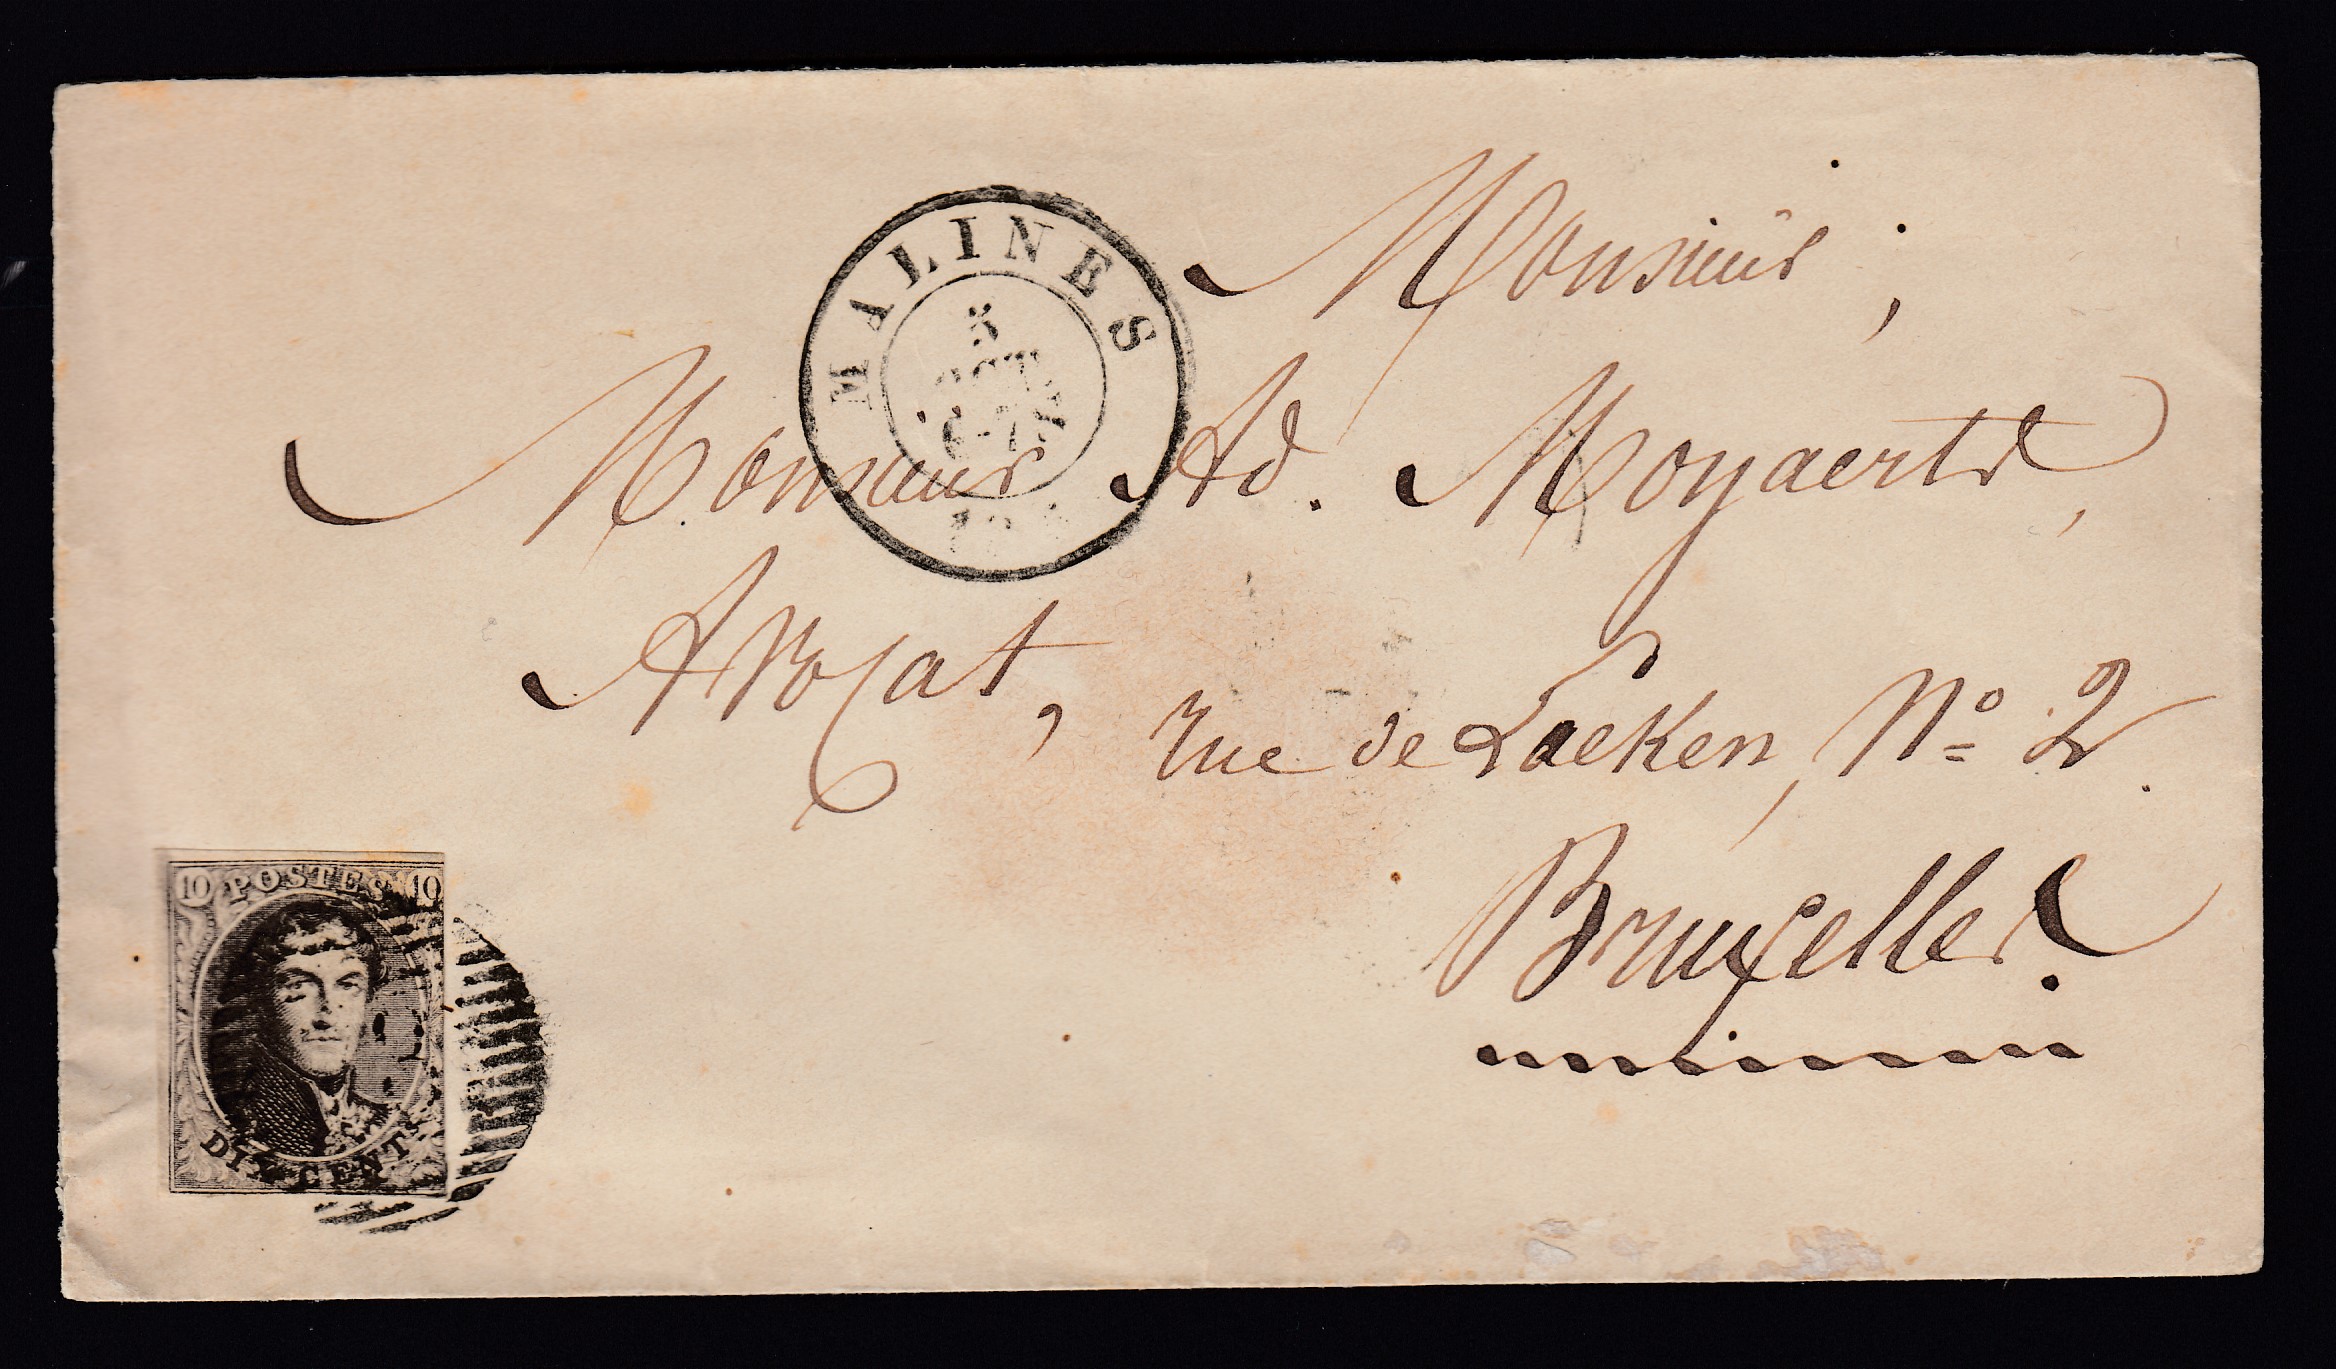 MALINES
5
OCT
6-7
Monsieur,
Monsieur Ad. Moyaerts,
Avocat,
rue de Laeken, Nº 2.
Bruxelles.
10 POSTES 10
DIX CENT